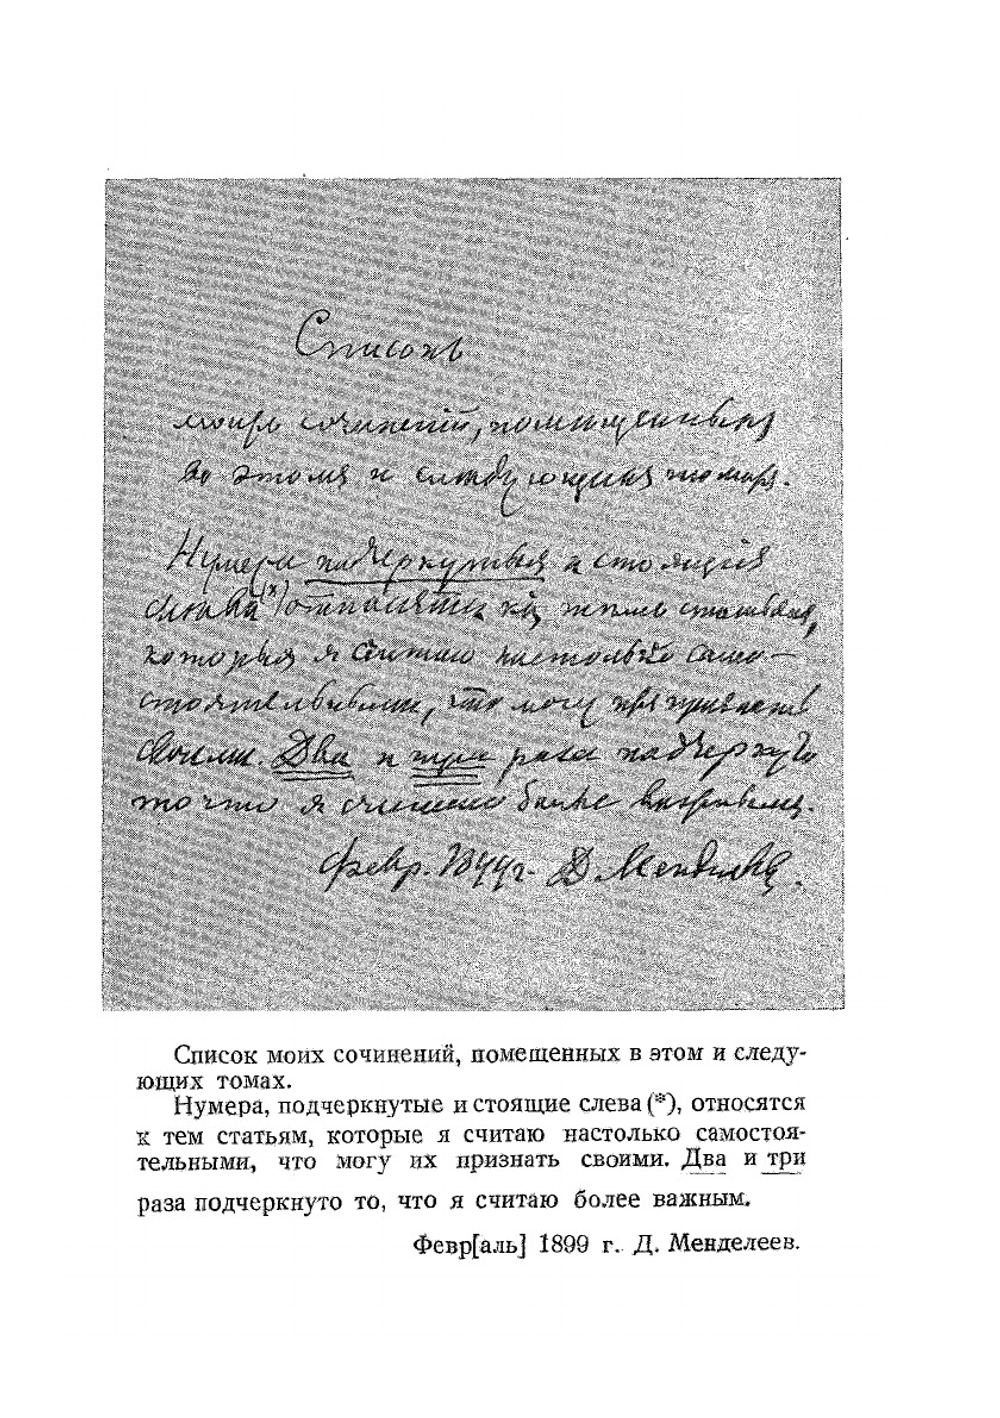 Списокъ
моихъ сочиненій, помещенныхъ
въ этомъ и следующихъ томахъ.
Нумера подчеркнутыя и стоящія
слева (*) относятся къ темъ статьямъ,
которыя я считаю настолько само-
стоятельными, что могу ихъ признать
своими. Два и три раза подчеркнуто
то что я считаю более важнымъ.
Февр. 1899 г. Д. Менделеевъ.
Список моих сочинений, помещенных в этом и следу-
ющих томах.
Нумера, подчеркнутые и стоящие слева (*), относятся
к тем статьям, которые я считаю настолько самостоя-
тельными, что могу их признать своими. Два и три
раза подчеркнуто то, что я считаю более важным.
Февр[аль] 1899 г. Д. Менделеев.